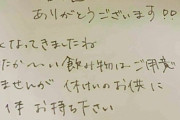 ありがとうございます!!
くなってきましたね
たか〜い飲み物はご用意
ませんが 休けいのお供に
体 お持ち下さい